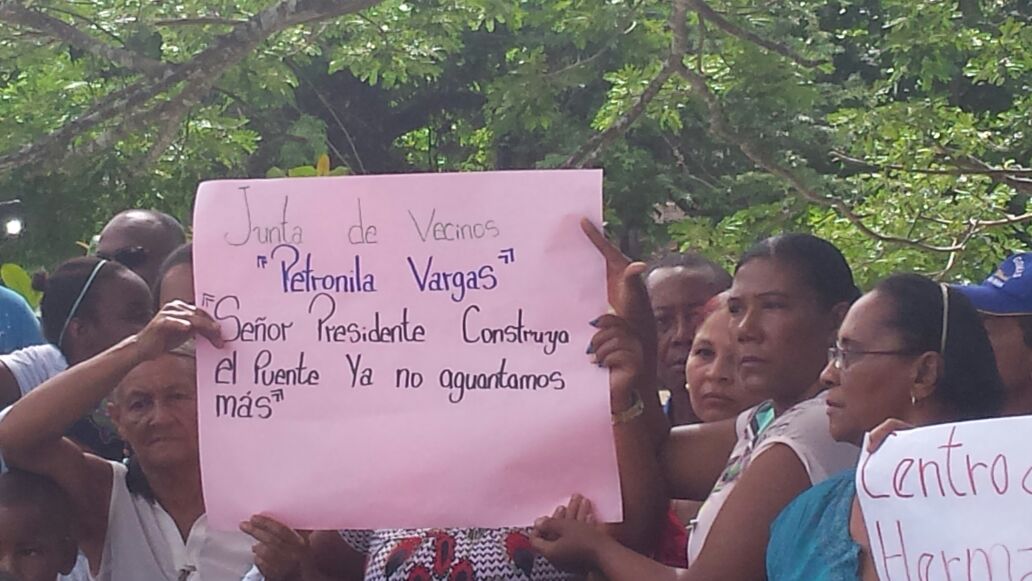 Junta de Vecinos
"Petronila Vargas"
"Señor Presidente Construya
el Puente Ya no aguantamos
más"
Centro
Herma